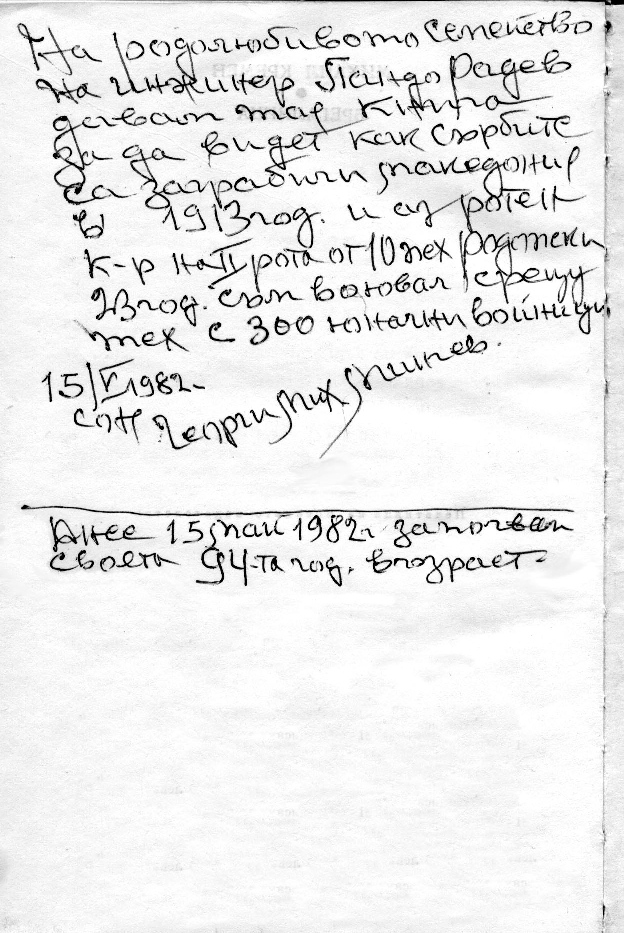 На родолюбивото семейство
на инжинер Пандо Радев
давам тая книга
за да видет как сърбите
са заграбили македония
в 1913 год. и аз ротен
к-р на II рота от 10 пех родопски
23 год. съм воювал срещу
тех с 300 юначни войници.
15/V 1982.
Георги Мих Минчев.
Днес 15 май 1982 г. започвам
своята 94-та год. възраст.